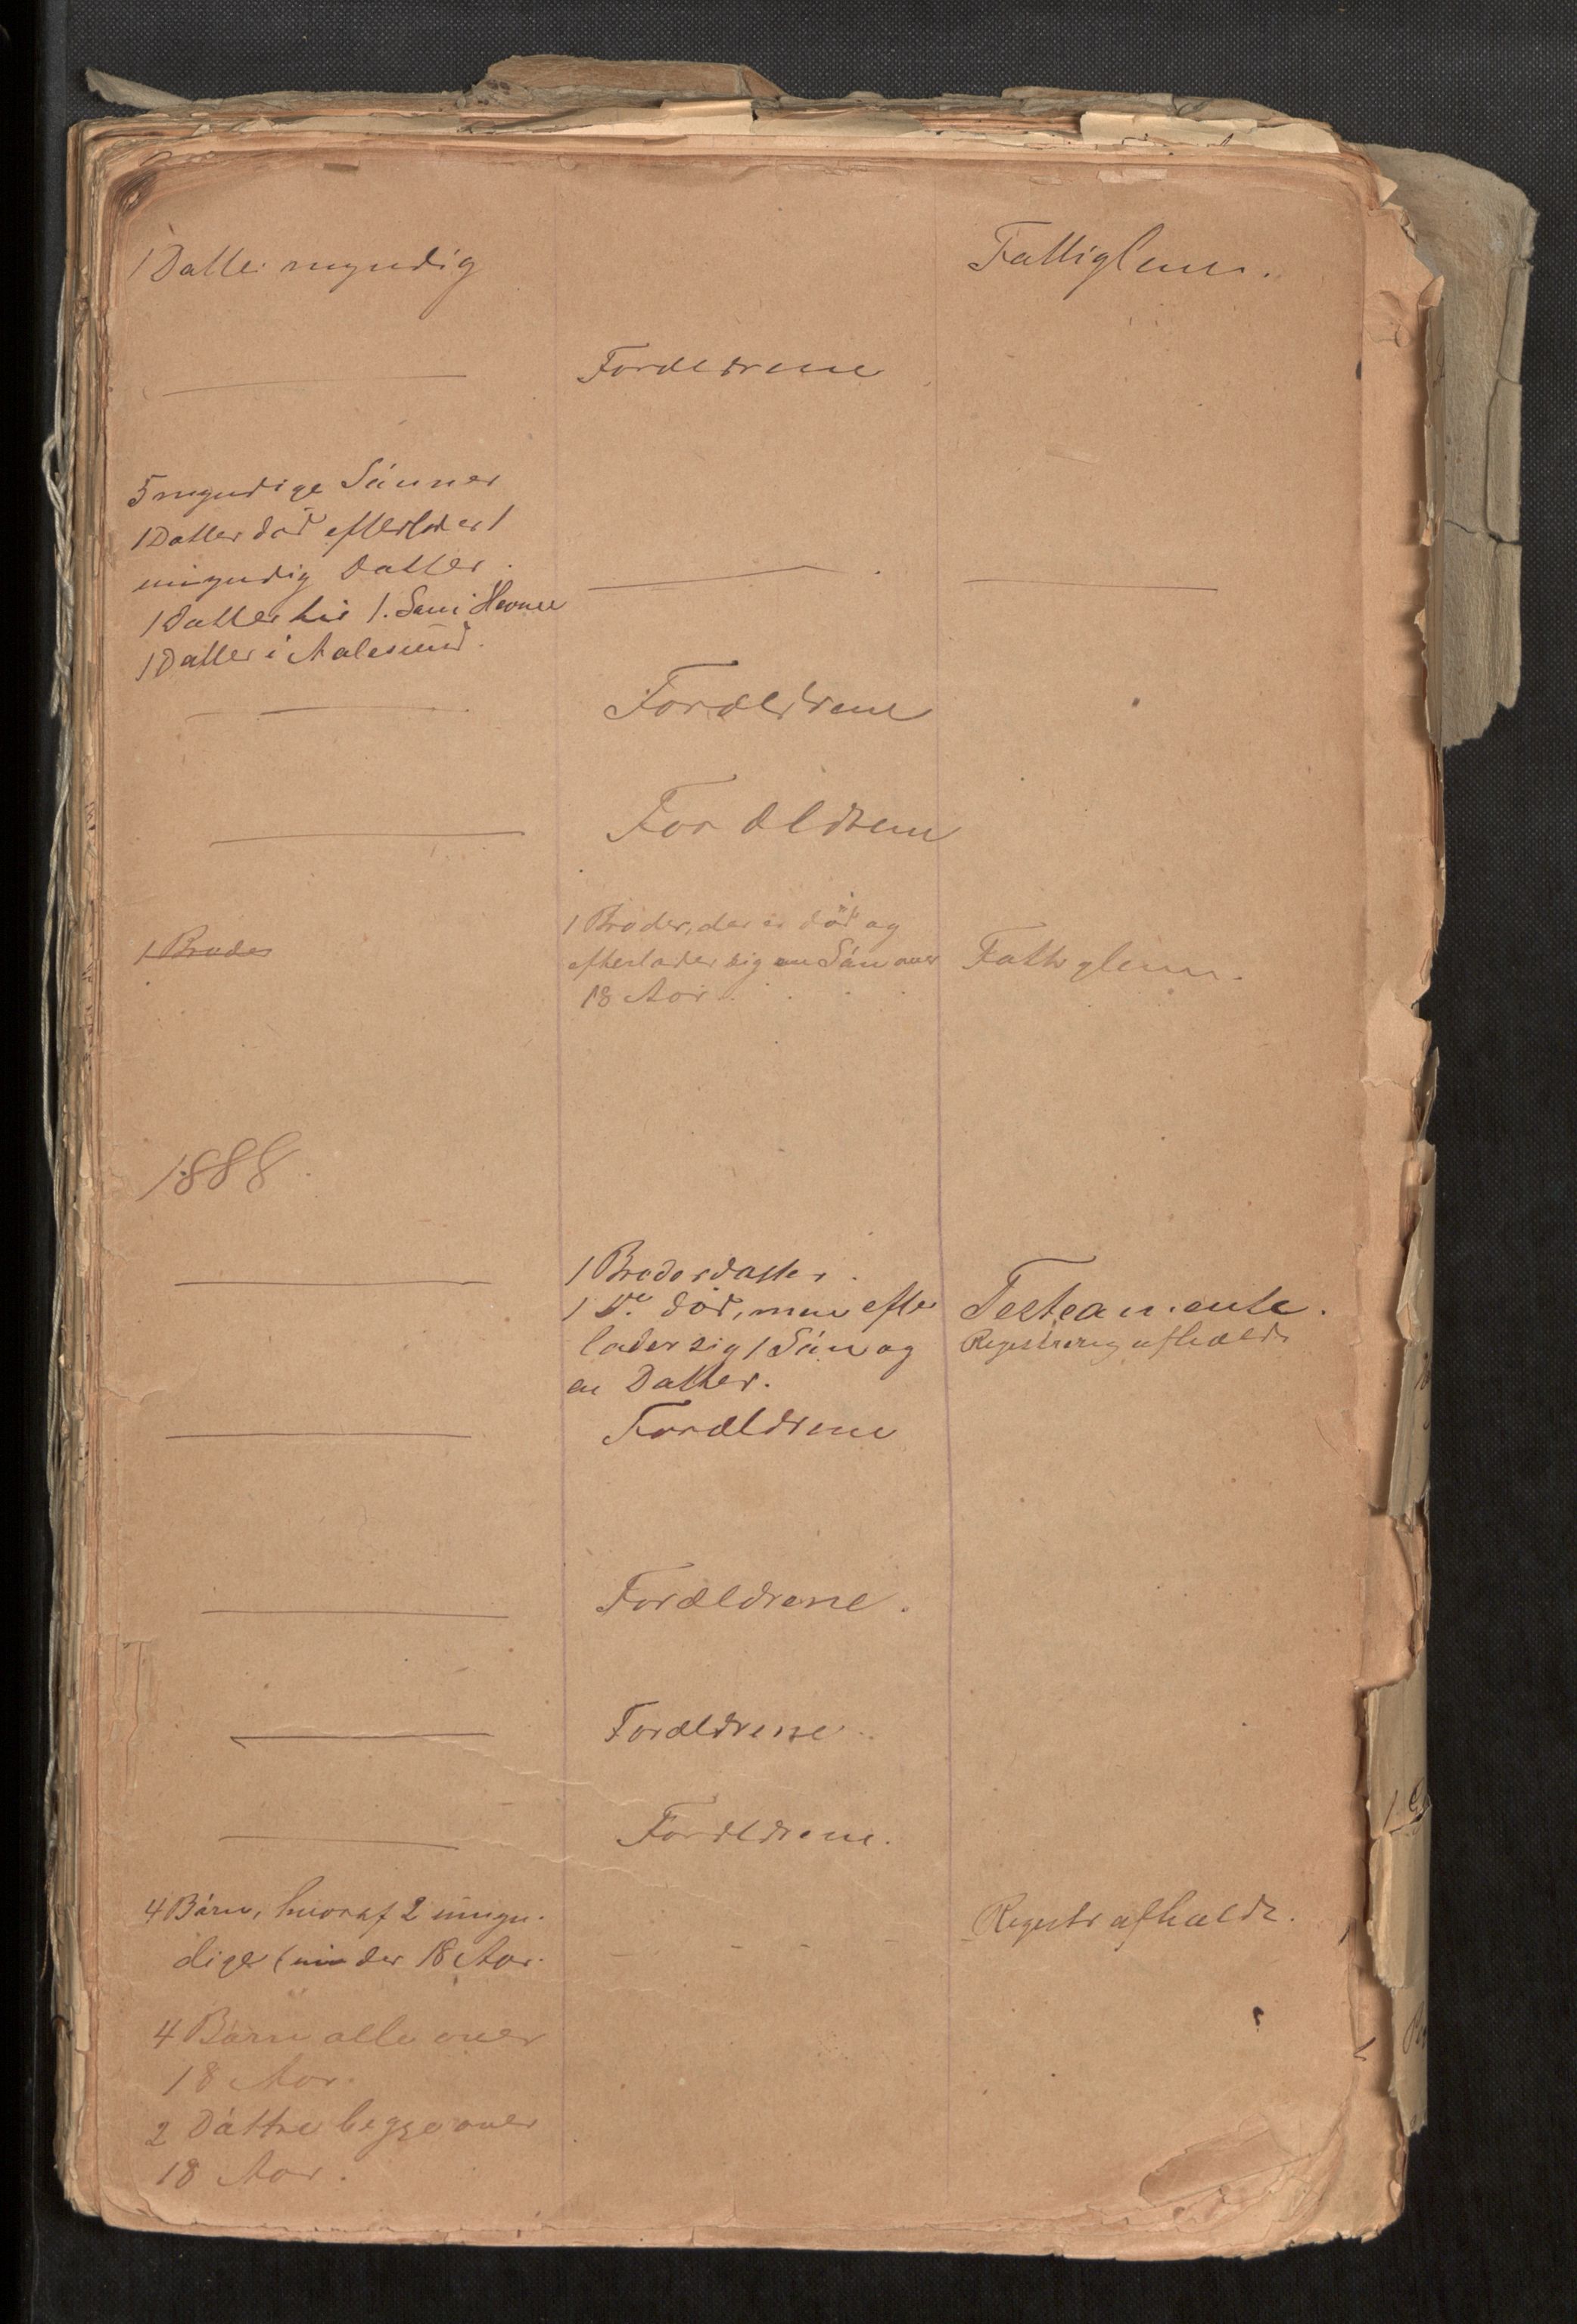 1 Datter myndig
Fattiglem.
Forældrene
5 myndige Sønner
1 Datter død efterlader 1
umyndig Datter.
1 Datter
1 Datter i Aalesund.
Forældrene
Forældrene
1 Broder
1 Broder, der er død og
efterlader sig en Søn over
18 Aar.
Fattiglem.
1888.
1 Broderdatter.
1 Do død, men efter
lader sig 1 Søn og
en Datter.
Testamente.
Registrering afholdt
Forældrene
Forældrene.
Forældrene.
Forældrene.
4 Børn, hvoraf 2 umyn-
dige (under 18 Aar.
Registr afholdt.
4 Børn alle over
18 Aar.
2 Døttre begge over
18 Aar.